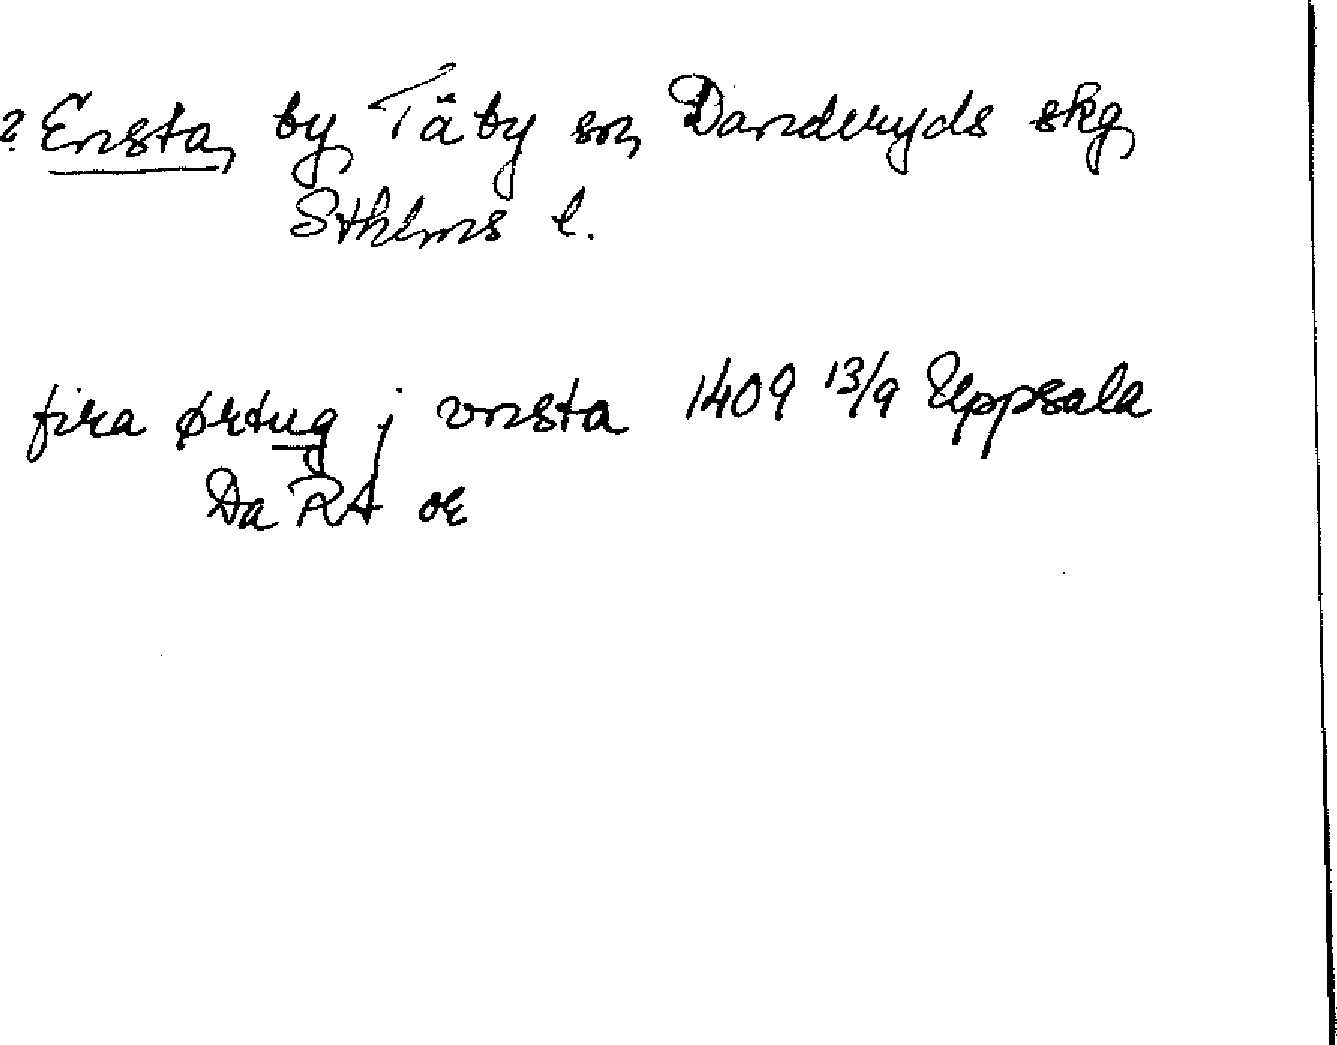 ? Ensta, by, Täby sn, Danderyds skg,
Sthlms l.
fira ørtug j vnsta 1409 13/9 Uppsala
Da RA or